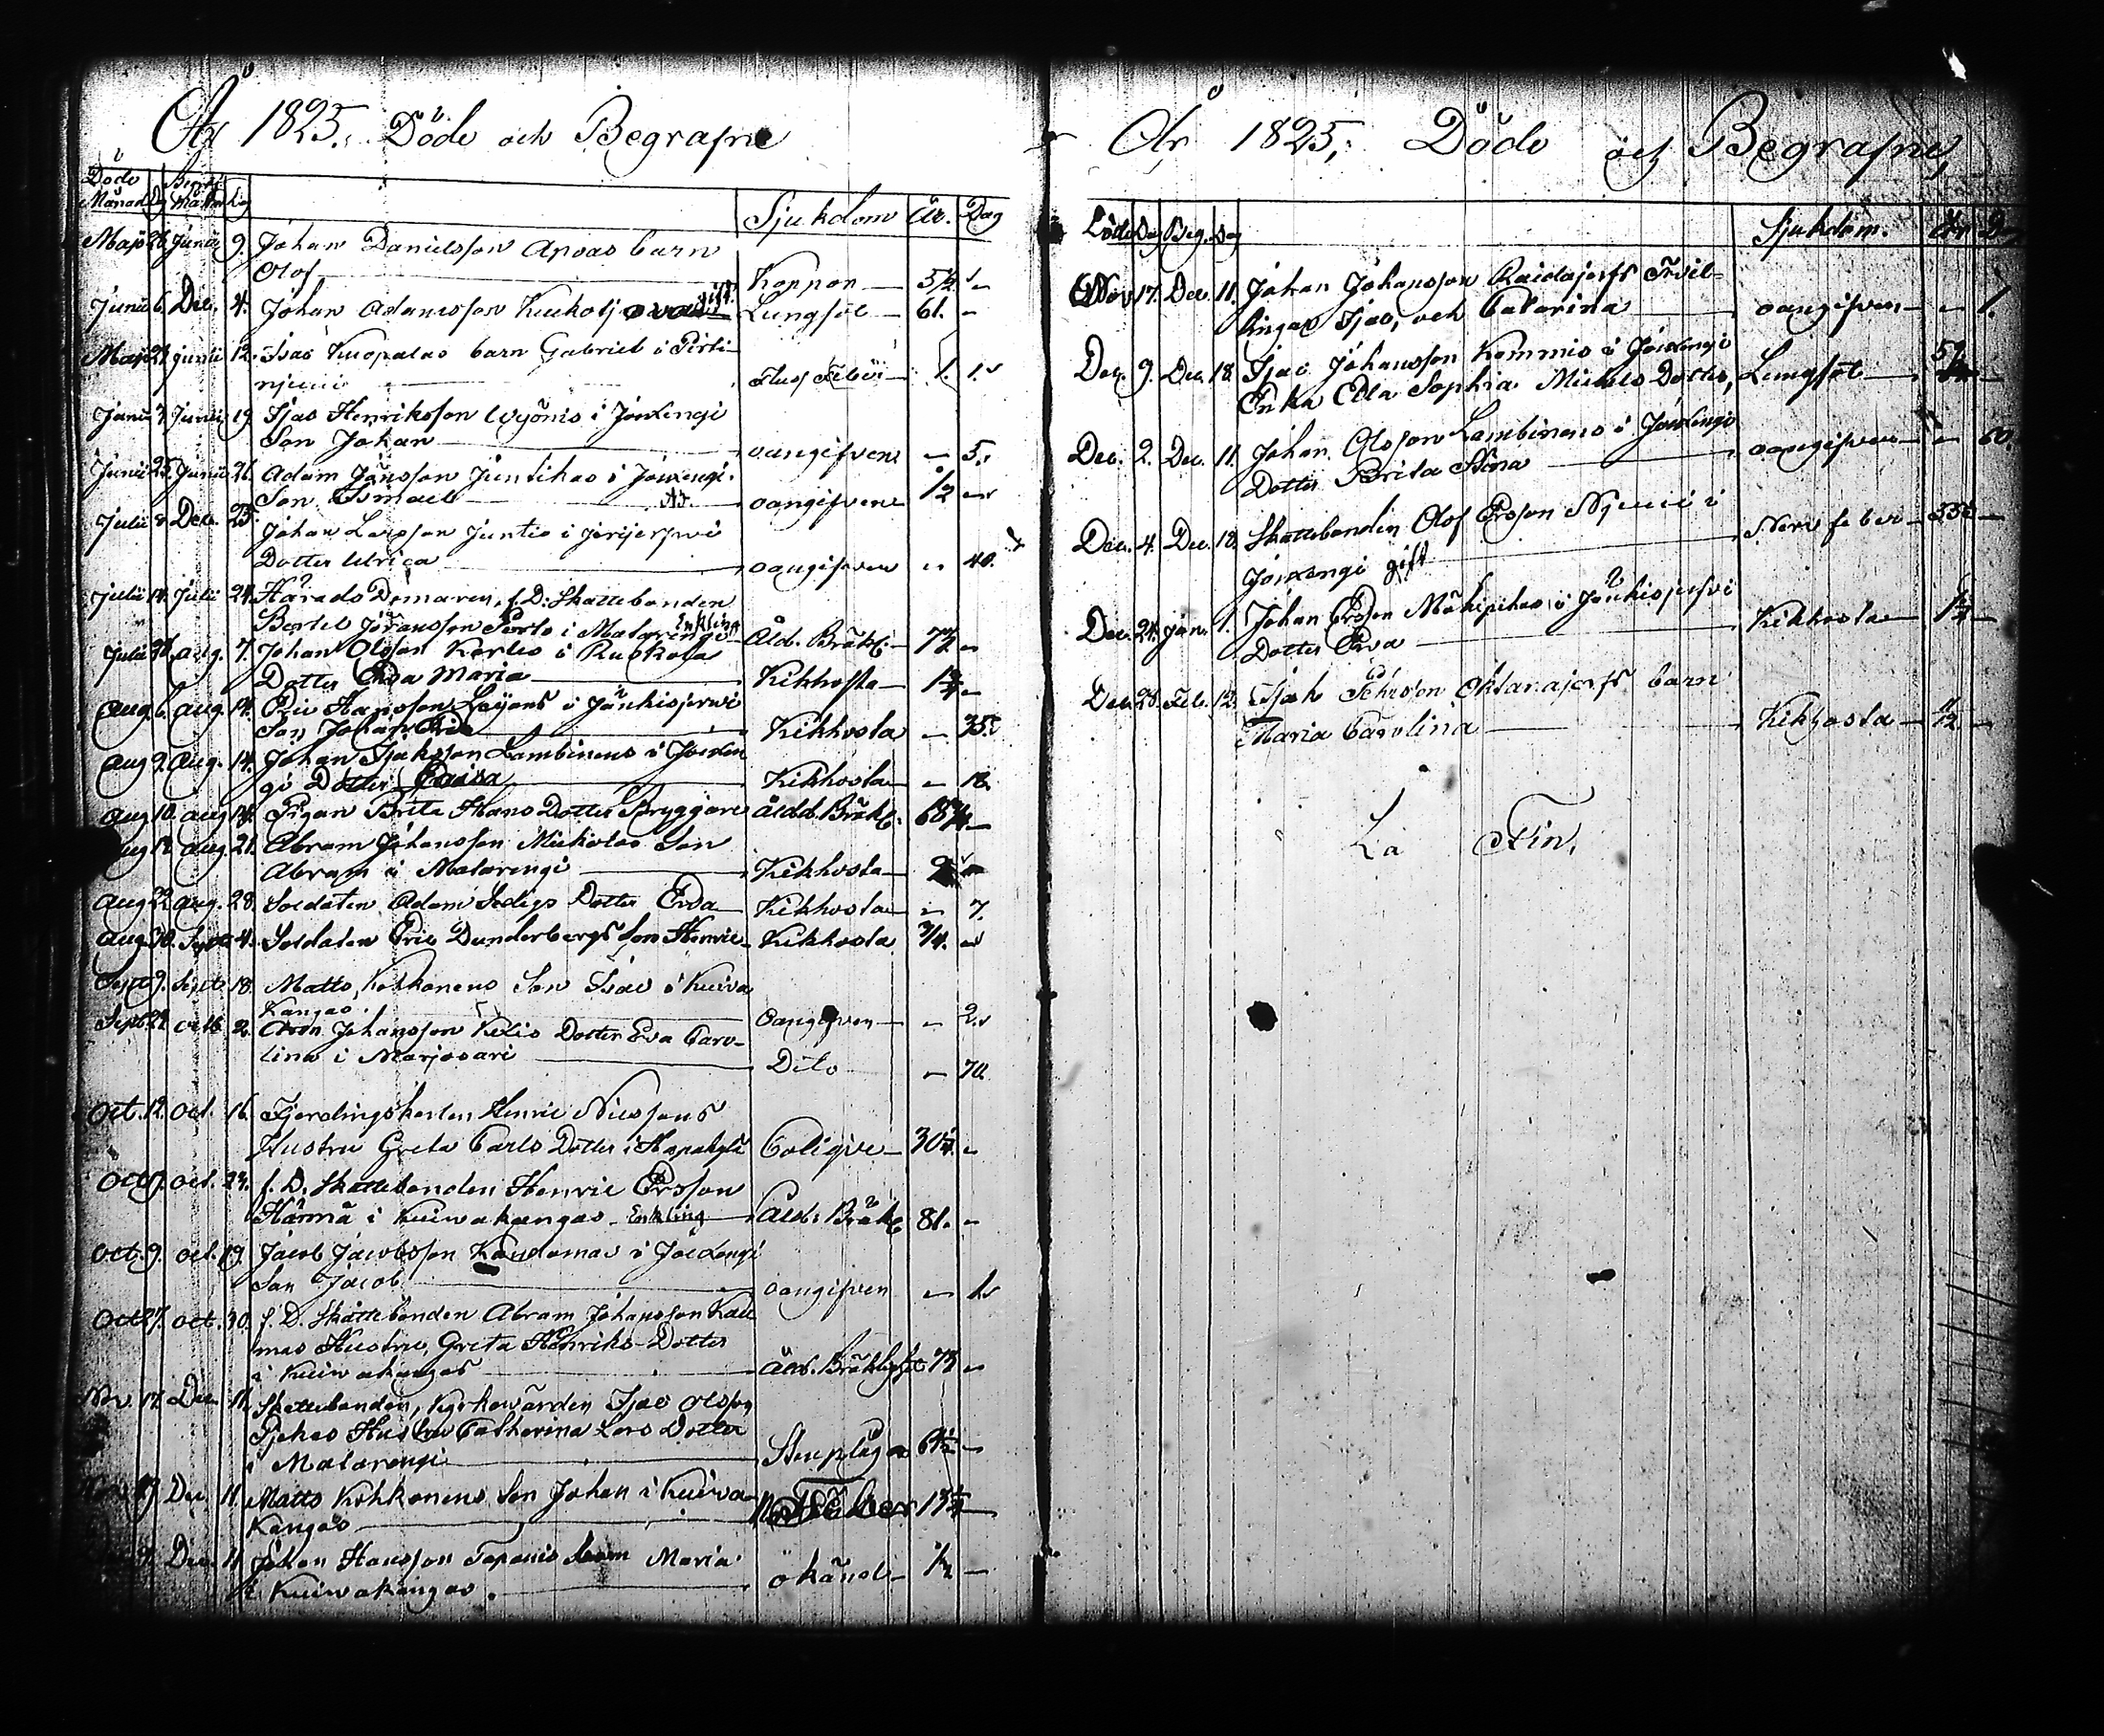 År 1825. Döde och Begrafne
Döde Begr:
Månad Dag Månad Dag
Sjukdom År. Dag
Maji 26 Junii 9. Johan Danielsson Apoas barn
Olof Koppor 5
Junii 6 Dec. 4. Johan Adamsson gift. Lungsot 61. "
Maji 29 Junii 12. Isac Kuopalas barn Gabriel i Perti-
njemi 1. 1.
Junii Junii 19 Isac Henriksson Wyönis i Jouxengi
Son Johan oangifven " 5.
Junii 25 Junii 26. Adam Jönsson Juntikas i Jouxengi.
Son Ismael oangifven 1/2 "
Julii 8 Dec. 25. Johan Larsson Juntis i Jerijerfwi
Dotter Ulrica oangifven " 40.
Julii 14 Julii 24. Härads Domaren, f.D: Skattebonden
Bertel Joransson i Matarengi Enkling Åld. Bräkl: 73 "
Julii 28 Aug. 7. Johan Olsson Kerttus i Ruskola
Dotter Eva Maria Kikhosta 1 3/4 "
Aug. 6. Aug. 14. Eric Hansson i Jänkisjerwi
Son Johan Eric Kikhosta " 35.
Aug 9. Aug. 14. Johan Isaksson Lambinens i Jouxen
gi Dotter Kikhosta " 18.
Aug 10. Aug 14. Pigan Brita Hans Dotter Bryggare Åldd. Bräkl. 68 3/4 "
Aug 12. Aug. 21. Abram Johansson Mickolas Son
Abram i Matarengi Kikhosta 2
Aug 22 Aug. 28. Soldaten Adam Sedigs Dotter Eva Kikhosta " 7.
Aug 30. Sept. 4. Soldaten Eric Dunderbergs Son Henric Kikhosta 3/4. "
Sept 9. Sept. 18. Matts Kohkonens Son Isac i Kuiva
Kangas. Oangifven " 2.
Sept 22 Octb. 2. Johansson Kelis Dotter Eva Caro-
lina i Marjosari Dito " 70.
Oct. 12. Oct. 16. Fjerdingskarlen Henric Nilssons
Hustru Greta Carls Dotter i Hapakylä Colique 30 1/4. "
Oct. Oct. 24. f. D. Skattebonden Henric Ersson
Hännä i Kuiwakangas Enkling Åld. Bräkl. 81. "
Oct. 9. Oct. 19. Jacob Jacobsson i Jouxengi
Son Jacob oangifven " 1.
Oct. 27. Oct. 30. f. D. Skattebonden Abram Johansson Kau
mas Hustru, Greta Henriks-Dotter
i Kuiwakangas Åld. Bräklighet 73 "
Nov. 17. Dec. 11. Skattebonden, Kyrkowärden Isac Olsson
Hustru Catharina Lars Dotter
i Matarengi Stenplåga "
Dec. 11. Matts Kohkonens Son Johan i Kuiva
Kangas Feber 13 3/4
Dec. 11. Johan Hansson Tapanis barn Maria
i Kuiwakangas. okänd 1/2
År 1825, Döde och Begrafne,
Döde Dag Beg. Dag Sjukdom. År Dag
Nov 17. Dec. 11. Johan Johansson Raidajerfs Tvil-
lingar Isac, och Catarina oangifven " 1.
Dec. 9. Dec. 18. Isac Johansson Kemmis i Jouxengi
Enka Eda Sophia Mickels Dotter, Lungsot
Dec. 2. Dec. 11. Johan Olsson Lambinens i Jouxengi
Dotter Brita Stina oangifven " 60.
Dec. 4. Dec. 18. Skattebonden Olof Ersson Njemi i
Jouxengi gift Nerv feber
Dec. 24. Jan. 1. Johan Ersson Mäkipihas, i Jänkisjerfvi
Dotter Eva Kikhosta
Dec. 28. Feb. 12. Isak Pehrsson barn
Maria Carolina Kikhosta 1/2
La Fin.